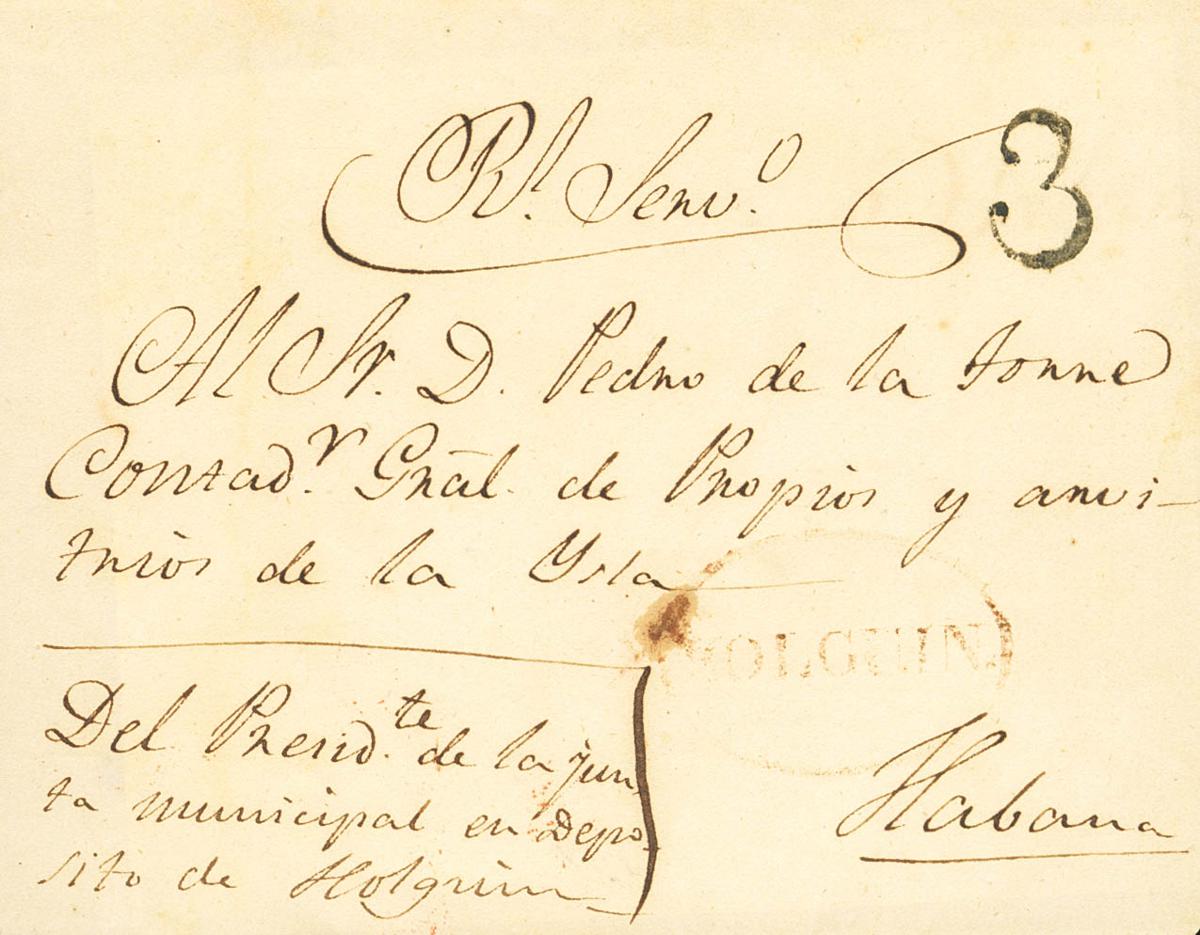 Rl. Servo. 3
Al Sr. D. Pedro de la torre
Contadr. Gnāl. de Propios y arvi-
trios de la Ysla
HOLGUIN.
Del Presidte. de la jun
ta municipal en Depo-
sito de Holguin
Habana